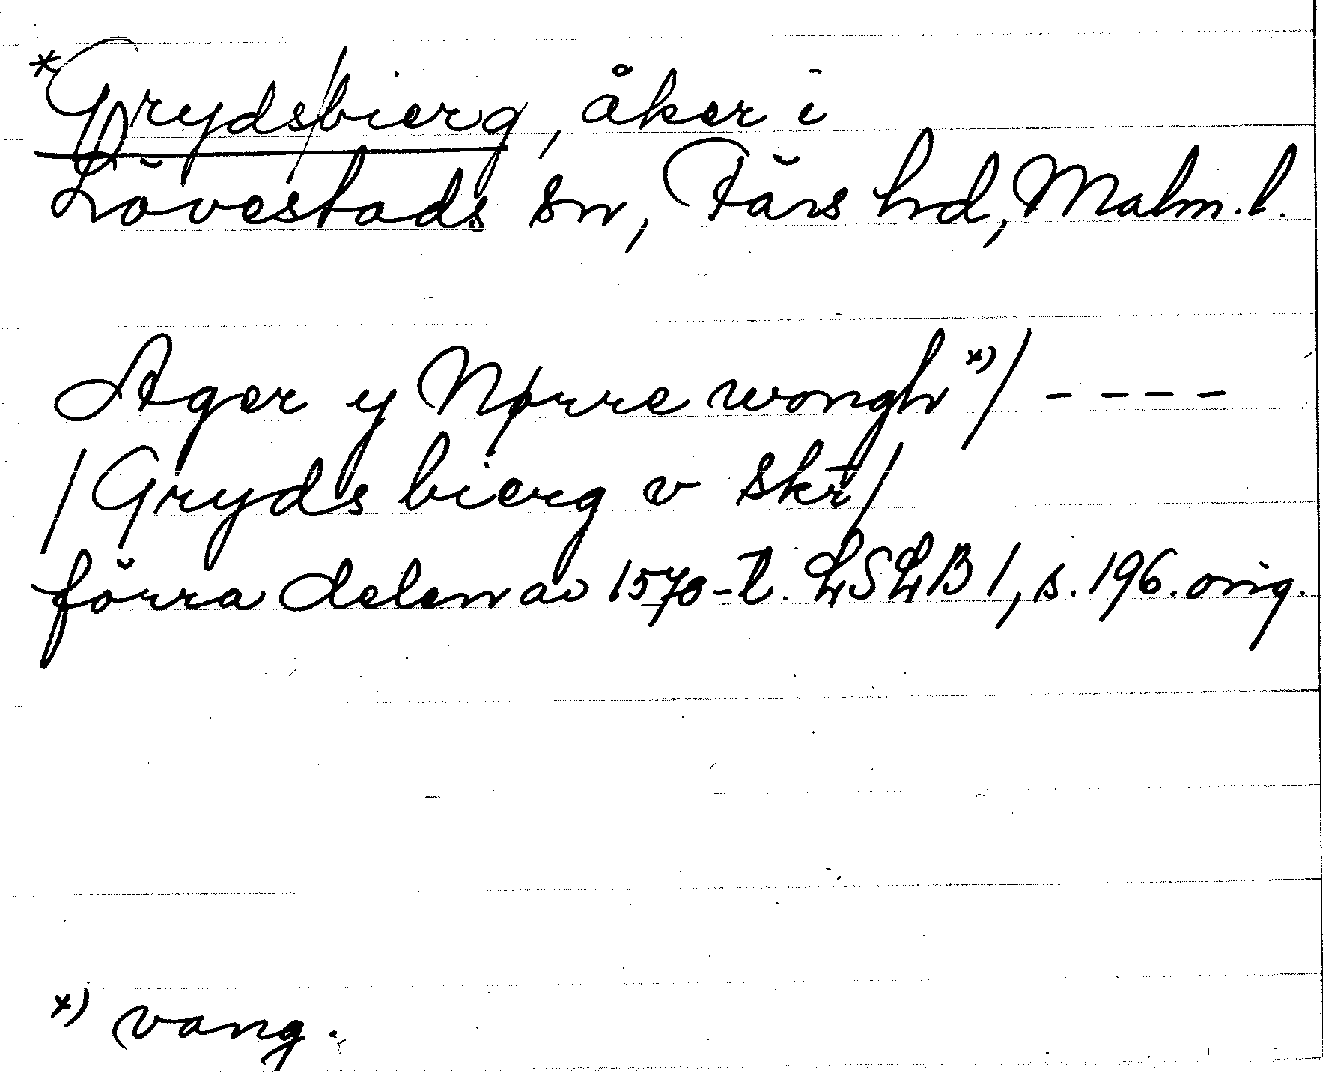 *Gryds/bierg, åker i
Lövestads sn, Färs hrd, Malm.l.
Ager y Nørre wongh*)/ - - - -
/Gryds bierg v skr/
förra delen av 1570-t. LSLB 1, s. 196. orig.
*) vang.